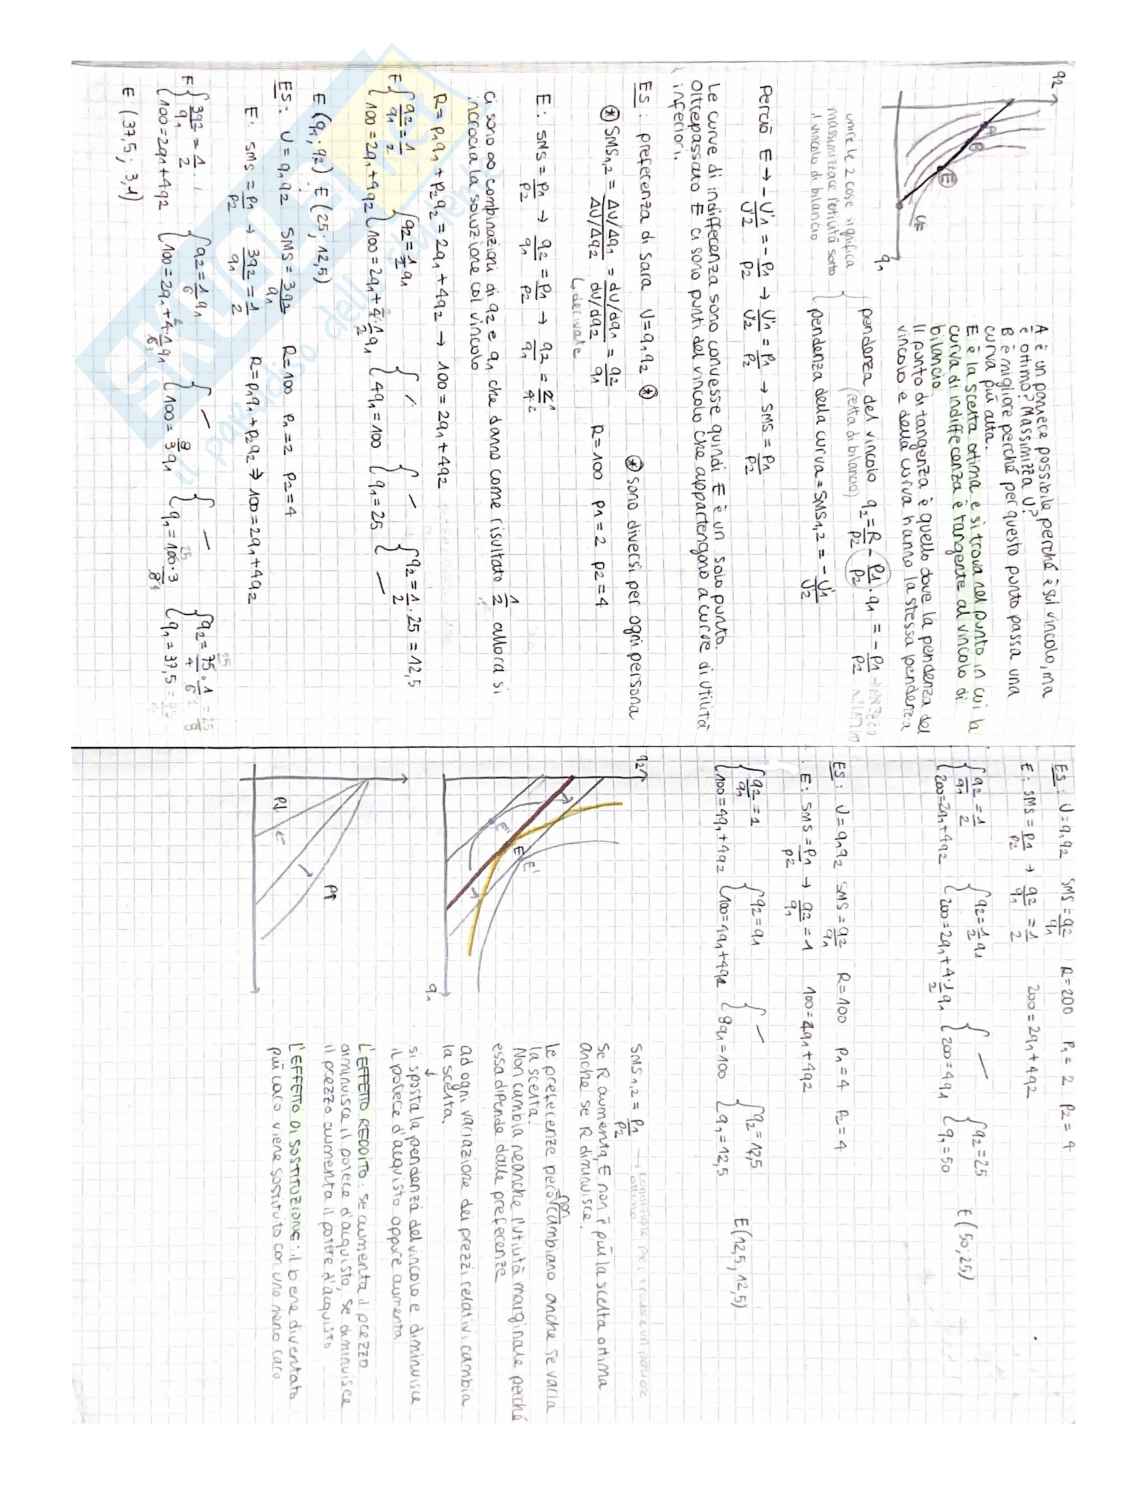 q2
A è un paniere possibile perché è sul vincolo, ma
è ottimo? Massimizza U?
B è migliore perché per questo punto passa una
curva più alta.
E è la scelta ottima e si trova nel punto in cui la
curva di indifferenza è tangente al vincolo di
bilancio.
Il punto di tangenza è quello dove la pendenza del
vincolo e della curva hanno la stessa pendenza
A
B
E
q1
unire le 2 cose significa
massimizzare l'utilità sotto
il vincolo di bilancio
pendenza del vincolo q2 = R/p2 - p1/p2 · q1 = - p1/p2
(retta di bilancio)
pendenza della curva = SMS1,2 = - U'1/U'2
Perciò E → - U'1/U'2 = - p1/p2 → U'1/U'2 = p1/p2 → SMS = p1/p2
Le curve di indifferenza sono convesse quindi E è un solo punto.
Oltrepassato E ci sono punti del vincolo che appartengono a curve di utilità
inferiori.
ES: preferenza di Sara U = q1q2 * * sono diversi per ogni persona
* SMS1,2 = ΔU/Δq1 / ΔU/Δq2 = dU/dq1 / dU/dq2 = q2/q1 R = 100 p1 = 2 p2 = 4
↳ derivate
E: SMS = p1/p2 → q2/q1 = p1/p2 → q2/q1 = 2/4 1/2
Ci sono ∞ combinazioni di q2 e q1 che danno come risultato 1/2 allora si
incrocia la soluzione col vincolo
R = p1q1 + p2q2 = 2q1 + 4q2 → 100 = 2q1 + 4q2
E { q2/q1 = 1/2 { q2 = 1/2 q1 { — { — { q2 = 1/2 · 25 = 12,5
100 = 2q1 + 4q2 { 100 = 2q1 + 4 · 1/2 q1 { 4q1 = 100 { q1 = 25 { —
E (q1; q2) E (25; 12,5)
ES: U = q1q2 SMS = 3q2/q1 R = 100 p1 = 2 p2 = 4
E: SMS = p1/p2 → 3q2/q1 = 1/2 R = p1q1 + p2q2 → 100 = 2q1 + 4q2
E { 3q2/q1 = 1/2 { q2 = 1/6 q1 { — { — { q2 = 75/4 · 1/6 = 25/8
100 = 2q1 + 4q2 { 100 = 2q1 + 4 · 1/6 q1 { 100 = 8/3 q1 { q1 = 100 · 3/8 { q1 = 37,5
E (37,5; 3,1)
ES: U = q1q2 SMS = q2/q1 R = 200 p1 = 2 p2 = 4
E: SMS = p1/p2 → q2/q1 = 1/2 200 = 2q1 + 4q2
{ q2/q1 = 1/2 { q2 = 1/2 q1 { — { q2 = 25
200 = 2q1 + 4q2 { 200 = 2q1 + 4 · 1/2 q1 { 200 = 4q1 { q1 = 50 E (50; 25)
ES: U = q1q2 SMS = q2/q1 R = 100 p1 = 4 p2 = 4
E: SMS = p1/p2 → q2/q1 = 1 100 = 4q1 + 4q2
{ q2/q1 = 1 { q2 = q1 { — { q2 = 12,5 E (12,5; 12,5)
100 = 4q1 + 4q2 { 100 = 4q1 + 4q2 { 8q1 = 100 { q1 = 12,5
q2
E'
E
E'
q1
SMS1,2 = p1/p2
Se R aumenta, E non è più la scelta ottima
anche se R diminuisce.
Le preferenze però non cambiano anche se varia
la scelta.
Non cambia neanche l'utilità marginale perché
essa dipende dalle preferenze
ad ogni variazione dei prezzi relativi, cambia
la scelta.
si sposta la pendenza del vincolo e diminuisce
il potere d'acquisto oppure aumenta
L'EFFETTO REDDITO: se aumenta il prezzo
diminuisce il potere d'acquisto, se diminuisce
il prezzo aumenta il potere d'acquisto
L'EFFETTO DI SOSTITUZIONE: il bene diventato
più caro viene sostituito con uno meno caro
P↓
P↑
SKUOLA.net
il paradiso dello studente